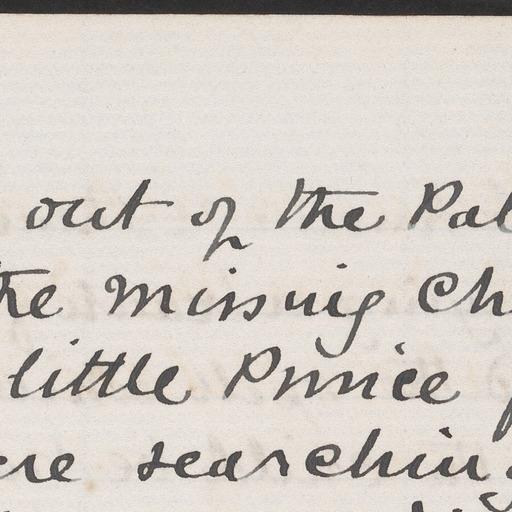 out of the Pal
the missing Ch
little Prince
ere searching